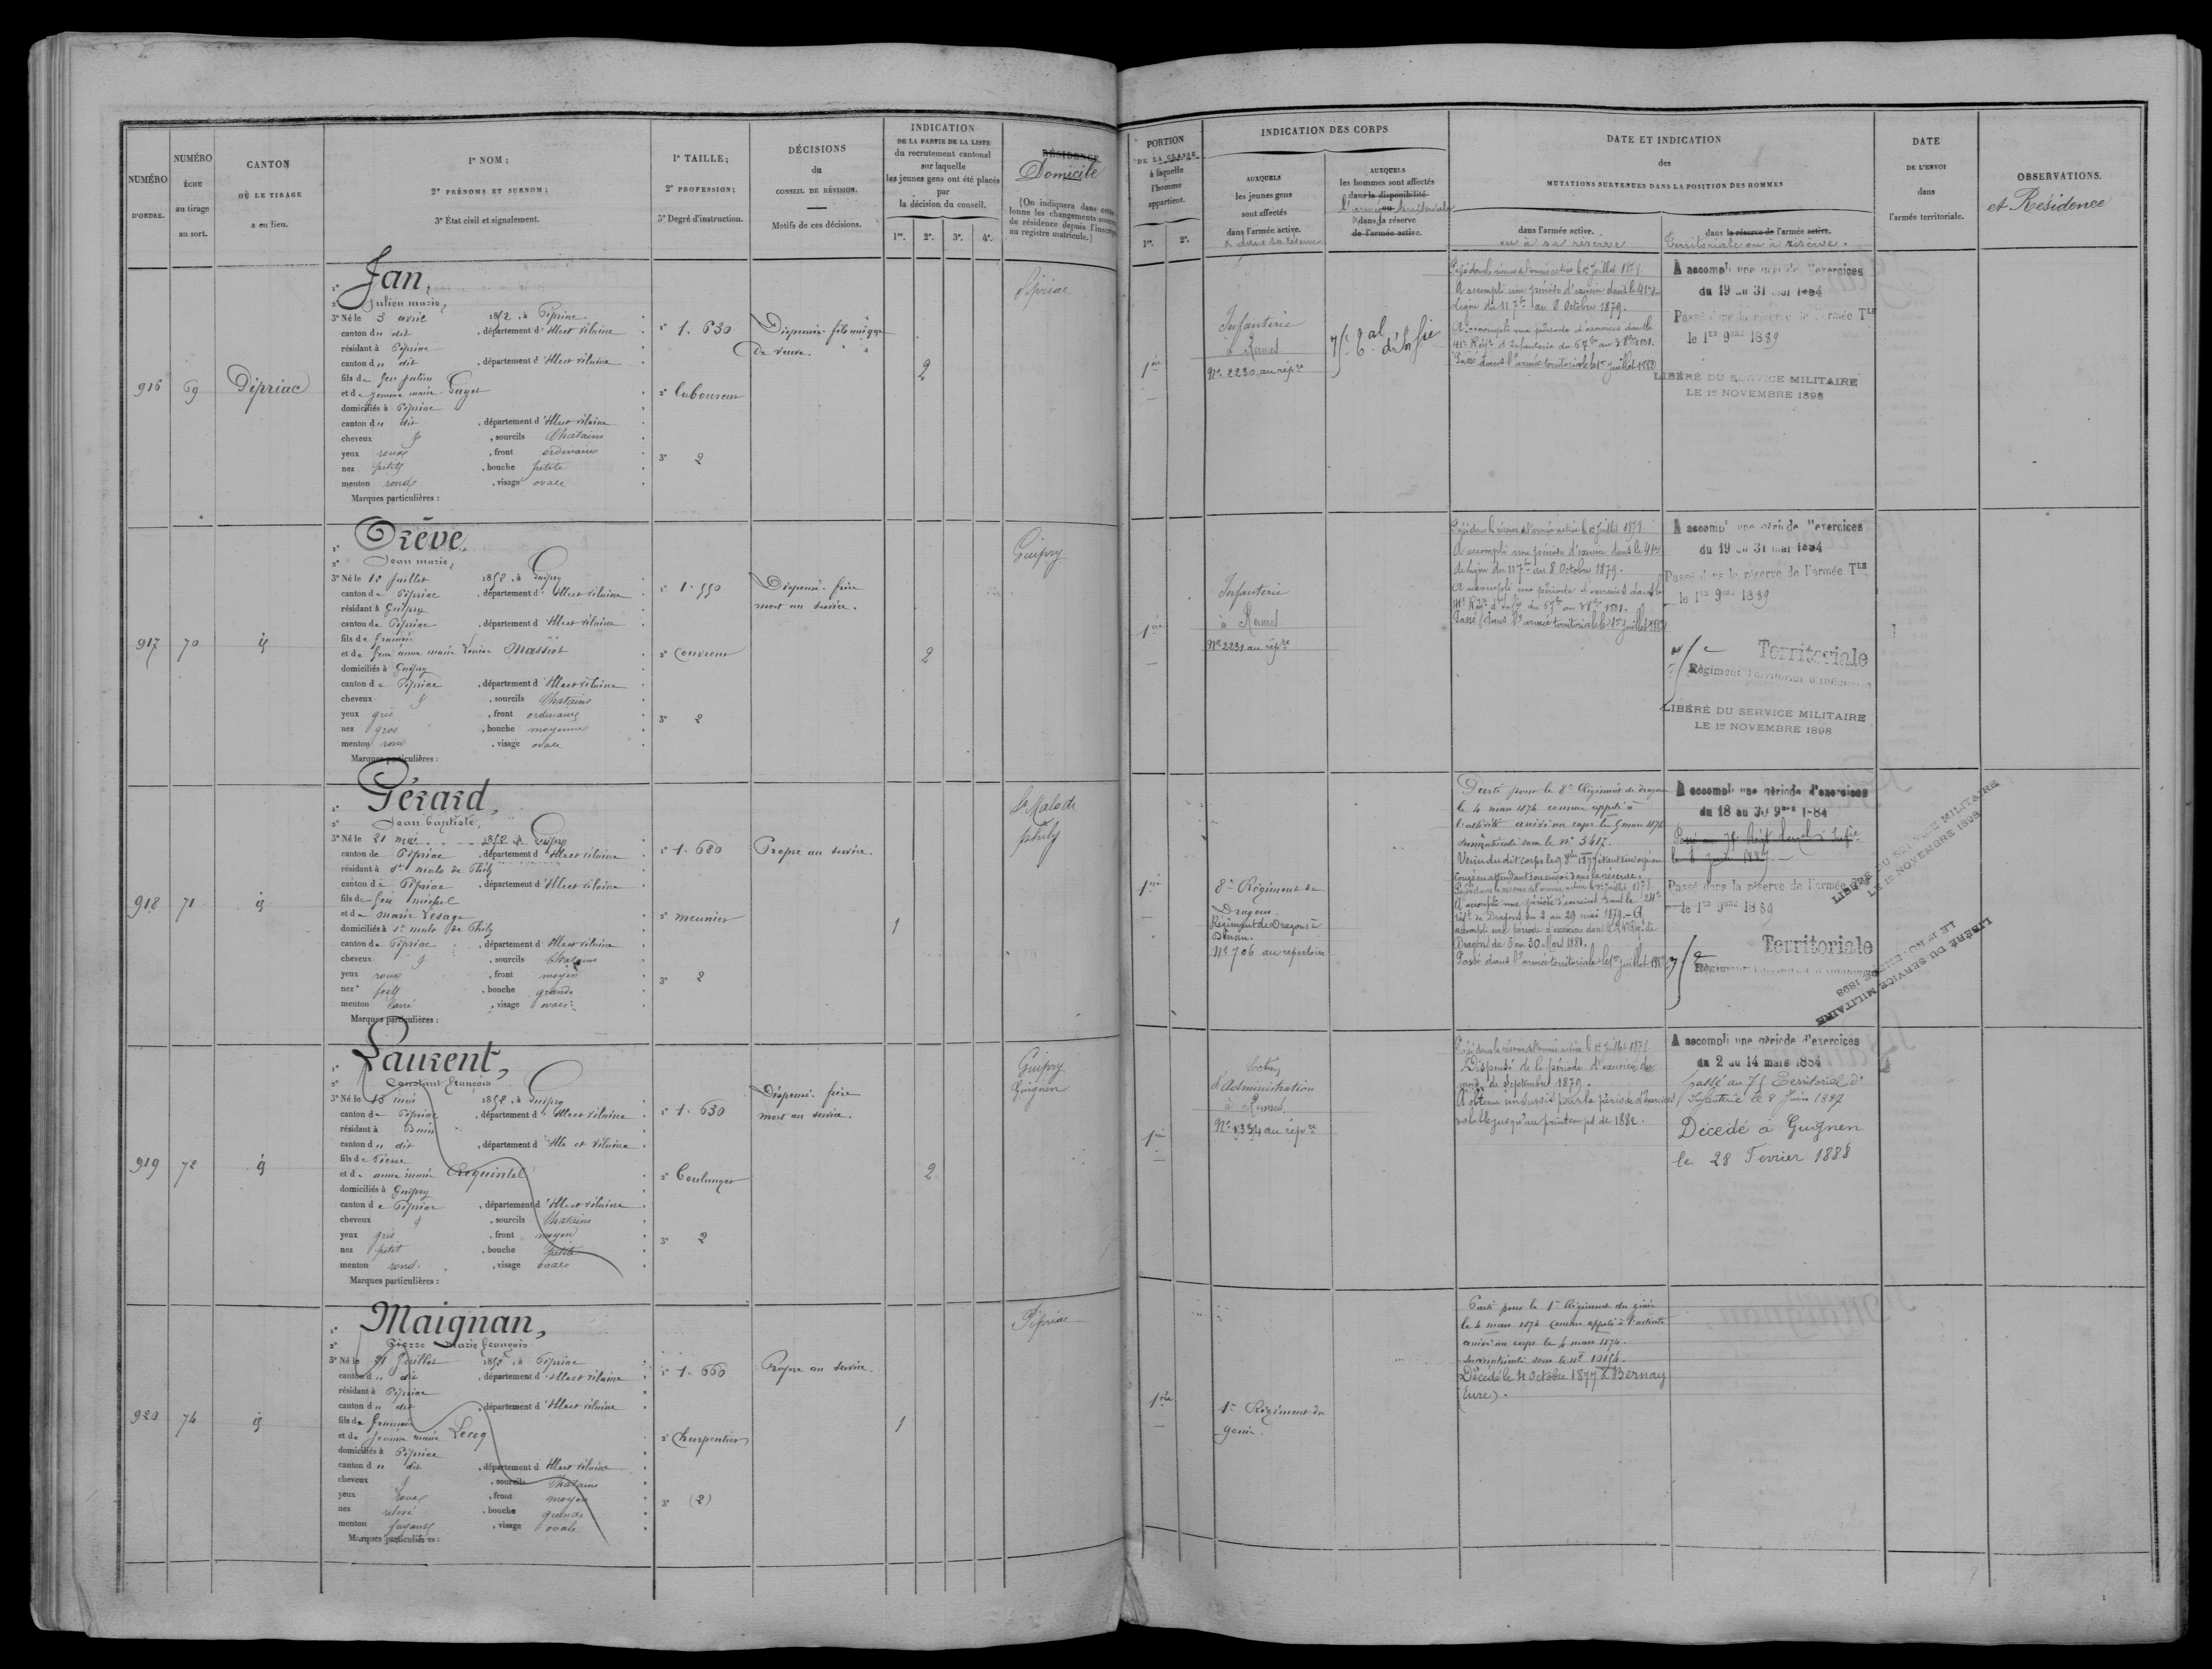 NUMÉRO
D'ORDRE.
NUMÉRO
ÉCHU
au tirage
au sort.
CANTON
OÙ LE TIRAGE
a eu lieu.
1º NOM ;
2º PRÉNOMS ET SURNOM ;
3º État civil et signalement.
1º TAILLE ;
2º PROFESSION ;
3º Degré d'instruction.
DÉCISIONS
du
CONSEIL DE RÉVISION.
Motifs de ces décisions.
INDICATION
DE LA PARTIE DE LA LISTE
du recrutement cantonal
sur laquelle
les jeunes gens ont été placés
par
la décision du conseil.
1re. 2e. 3e. 4e.
RÉSIDENCE
Domicile
(On indiquera dans cette
lonne les changements
de résidence depuis
au registre matricule.)
PORTION
DE LA CLASSE
à laquelle
l'homme
appartient.
1re. 2e.
INDICATION DES CORPS
AUXQUELS
les jeunes gens
sont affectés
dans l'armée active.
& dans sa réserve
AUXQUELS
les hommes sont affectés
dans la disponibilité
ou
l'armée territoriale
& dans sa réserve
de l'armée active.
DATE ET INDICATION
des
MUTATIONS SURVENUES DANS LA POSITION DES HOMMES
dans l'armée active.
ou à sa réserve
dans la réserve de l'armée active.
Territoriale ou à réserve.
DATE
DE L'ENVOI
dans
l'armée territoriale.
OBSERVATIONS.
et Résidence
916
69
Pipriac
1º Jan,
2º Julien marie,
3º Né le 3 avril 1852, à Pipriac
canton du dit, département d'Ille et Vilaine
résidant à Pipriac
canton du dit, département d'Ille et Vilaine
fils de feu Julien
et de Jeanne marie
domiciliés à Pipriac
canton du dit, département d'Ille et Vilaine
cheveux, sourcils Chatains
yeux roux, front ordinaire
nez petit, bouche petite
menton rond, visage ovale
Marques particulières :
1º 1. 630
2º Laboureur
3º 2
Dispensé fils unique
de veuve.
2
Pipriac
1ère
Infanterie
à Rennes
Nº 2230 au rép.re
75e tal d'Inf.ie
Passé dans la réserve de l'armée active le 1er Juillet 1878.
A accompli une période d'exercice dans le 41e de
Ligne du 11 7bre au 8 Octobre 1879.
A accompli une période d'exercices dans le
41e Régt d'Infanterie du 6 7bre au 3 8bre 1881.
Passé dans l'armée territoriale le 1er Juillet 1882
A accompli une période d'exercices
du 19 au 31 mai 1884
Passé dans la réserve de l'armée Tle
le 1er 9bre 1889
LIBÉRÉ DU SERVICE MILITAIRE
LE 1er NOVEMBRE 1898
917
70
id
1º Orève
2º Jean marie,
3º Né le 12 Juillet 1852, à Guipry
canton de Pipriac, département d'Ille et Vilaine
résidant à Guipry
canton de Pipriac, département d'Ille et Vilaine
fils de François
et de feue anne marie Massiot
domiciliés à Guipry
canton de Pipriac, département d'Ille et Vilaine
cheveux, sourcils Chatains
yeux gris, front ordinaire
nez gros, bouche moyenne
menton rond, visage ovale
Marques particulières :
1º 1. 550
2º Couvreur
3º 2
Dispensé frère
mort au service.
2
Guipry
1ère
Infanterie
à Rennes
Nº 2231 au rép.re
Passé dans la réserve de l'armée active le 1er Juillet 1878.
A accompli une période d'exercice dans le 41e
de Ligne du 11 7bre au 8 Octobre 1879.
A accompli une période d'exercices dans le
41e Régt d'Inf.ie du 6 7bre au 3 8bre 1881.
Passé dans l'armée territoriale le 1er Juillet 1882
A accompli une période d'exercices
du 19 au 31 mai 1884
Passé dans la réserve de l'armée Tle
le 1er 9bre 1889
75e Territoriale
Régiment Territorial d'Infanterie
LIBÉRÉ DU SERVICE MILITAIRE
LE 1er NOVEMBRE 1898
918
71
id
1º Gérard,
2º Jean baptiste,
3º Né le 21 mai 1852, à Guipry
canton de Pipriac, département d'Ille et Vilaine
résidant à St malo de Phily
canton de Pipriac, département d'Ille et Vilaine
fils de feu michel
et de marie Lesage
domiciliés à St malo de Phily
canton de Pipriac, département d'Ille et Vilaine
cheveux, sourcils Chatains
yeux roux, front moyen
nez fort, bouche grande
menton carré, visage ovale
Marques particulières :
1º 1. 680
2º meunier
3º 2
Propre au service.
1
St Malo de
Phily
1ère
8e Régiment de
Dragons.
Régiment de Dragons à
Dinan.
Nº 706 au répertoire
Parti pour le 8e Régiment de dragons
le 4 mars 1874 comme appelé à
l'activité arrivé au corps le 5 mars 1874
immatriculé sous le nº 3617.
Venu du dit corps le 9 8bre 1877 étant envoyé en
congé en attendant son envoi dans la réserve.
Passé dans la réserve de l'armée active le 1er Juillet 1878.
A accompli une période d'exercices dans le 24e
régt de Dragons du 2 au 29 mai 1879. - A
accompli une période d'exercices dans le 24e Régt de
Dragons de 3 au 30 Mars 1881.
Passé dans l'armée territoriale le 1er Juillet 1882
A accompli une période d'exercices
du 18 au 30 9bre 1884
Passé au 75e Régt territ. d'Inf.ie
le 8 Juin 1887
Passé dans la réserve de l'armée Tle
le 1er 9bre 1889
75e Territoriale
LIBÉRÉ DU SERVICE MILITAIRE
LE 1er NOVEMBRE 1898
LIBÉRÉ DU SERVICE MILITAIRE
LE 1er NOVEMBRE 1898
919
72
id
1º Laurent,
2º Constant François
3º Né le 13 mai 1852, à Guipry
canton de Pipriac, département d'Ille et Vilaine
résidant à Bain
canton du dit, département d'Ille et Vilaine
fils de Pierre
et de anne marie Croquintel
domiciliés à Guipry
canton de Pipriac, département d'Ille et Vilaine
cheveux, sourcils Chatains
yeux gris, front moyen
nez petit, bouche petite
menton rond, visage ovale
Marques particulières :
1º 1. 630
2º Boulanger
3º 2
Dispensé frère
mort au service.
2
Guipry
Guignen
1ère
Section
d'Administration
à Rennes
Nº 1334 au rép.re
Passé dans la réserve de l'armée active le 1er Juillet 1878.
Dispensé de la période d'exercices du
mois de septembre 1879.
A obtenu un sursis pour la période d'exercices
valable jusqu'au printemps de 1882.
A accompli une période d'exercices
du 2 au 14 mars 1884
Passé au 75 Territorial d'
Infanterie le 8 Juin 1887
Décédé à Guignen
le 28 Fevrier 1888
920
74
id
1º Maignan,
2º Pierre Marie françois
3º Né le 21 Juillet 1852, à Pipriac
canton du dit, département d'Ille et Vilaine
résidant à Pipriac
canton du dit, département d'Ille et Vilaine
fils de François
et de Jeanne marie Lecoq
domiciliés à Pipriac
canton du dit, département d'Ille et Vilaine
cheveux, sourcils Chatains
yeux roux, front moyen
nez relevé, bouche grande
menton, visage ovale
Marques particulières :
1º 1. 660
2º Charpentier
3º (2)
Propre au service.
1
Pipriac
1ère
1er Régiment du
génie.
Parti pour le 1er Régiment du génie
le 4 mars 1874 comme appelé à l'activité
arrivé au corps le 4 mars 1874.
immatriculé sous le nº 10154.
Décédé le 4 Octobre 1877 à Bernay
(Eure).